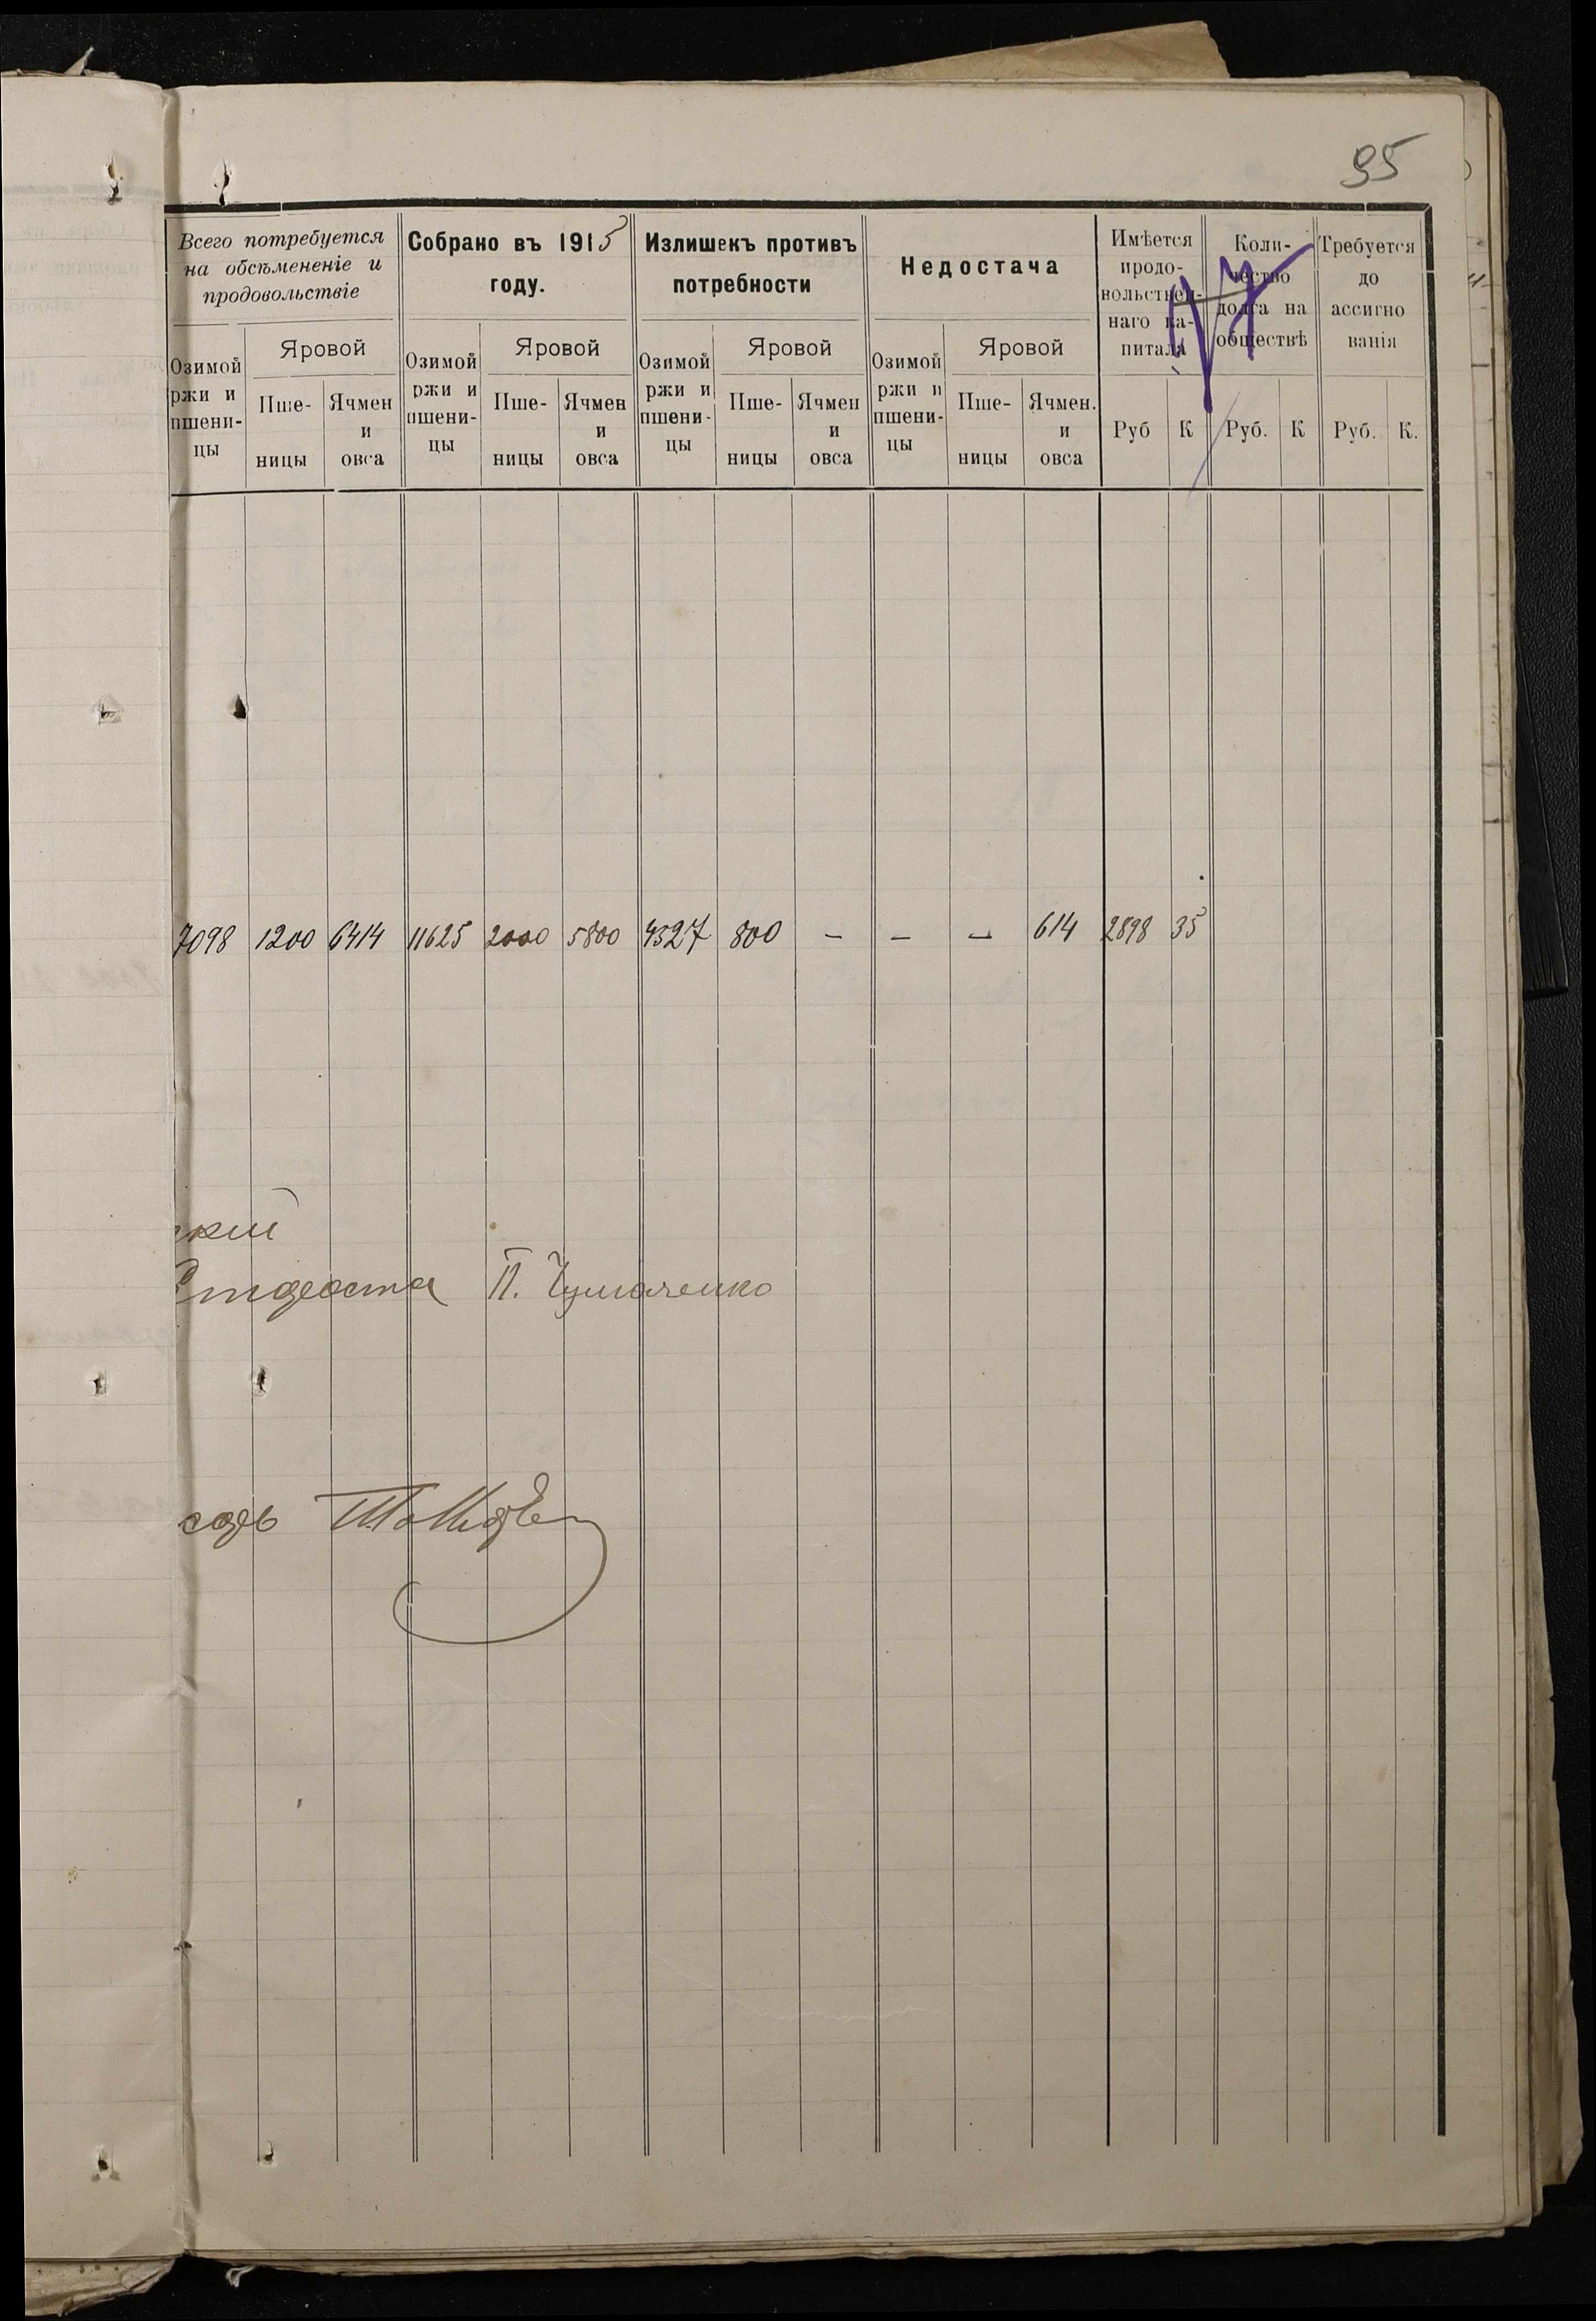 95
Всего потребуется на обсѣмененіе и продовольствіе
Собрано въ 1915 году.
Излишекъ противъ потребности
Недостача
Имѣется продо-вольствен-наго ка-питала
Коли-чество долга на обществѣ
Требуется до ассигно ванія
Озимой ржи и пшени-цы
Яровой
Пше-ницы
Ячмен и овса
Озимой ржи и пшени-цы
Яровой
Пше-ницы
Ячмен и овса
Озимой ржи и пшени-цы
Яровой
Пше-ницы
Ячмен и овса
Озимой ржи и пшени-цы
Яровой
Пше-ницы
Ячмен. и овса
Руб К
Руб. К
Руб. К.
7098 1200 6414 11625 2000 5800 4527 800 – – – 614 2898 35
кій
П. Чумаченко